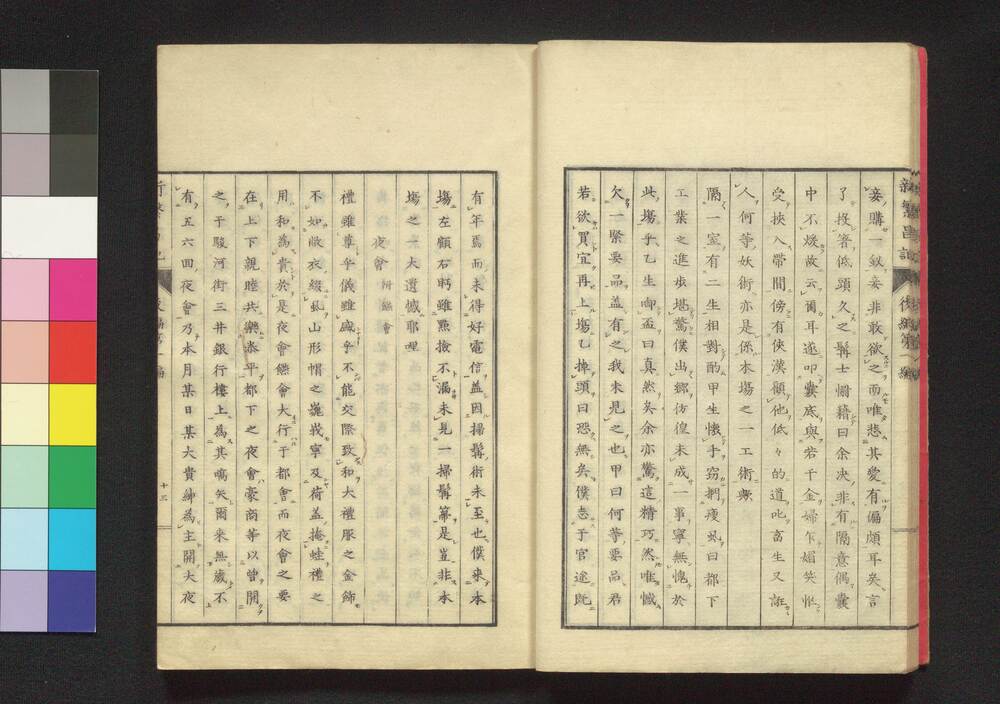 妾購一釵妾非敢欲之而唯悲其愛有偏頗耳矣言
了投簪低頭久之髯士慰藉曰余决非有隔意偶囊
中不煖故云爾耳遂叩囊底與若干金婦乍媚笑
受挾入帶間傍有俠漢顧他低々的道叱畜生又誑
人何等妖術亦是係本塲之一工術歟
隔一室有二生相對酌甲生懐手窃捫瘦虱曰都下
工業之進歩堪驚僕出郷彷徨未成一事寧無愧於
此塲乎乙生啣盃曰真然矣余亦驚這精巧然唯憾
欠一緊要品盖有之我未見之也甲曰何等要品君
若欲買宜再上塲乙掉頭曰恐無矣僕志于官途既
有年焉而未得好電信盖因掃髯術未至也僕來本
塲左顧右眄雖㸃撿不漏未見一掃髯箒是豈非本
塲之一大遺憾耶哩
夜會
禮雖尊乎儀雖盛乎不能交際致和大禮服之金飾
不如敝衣綴虱山形帽之巍峩寧及荷盖掩蛙禮之
用和為貴於是夜會讌會大行于都會而夜會之要
在上下親睦共樂泰平都下之夜會豪商等以曾開
之于駿河街三井銀行樓上為其嚆矢爾來無歳不
有五六四夜會乃本月某日某大貴紳為主開大夜
十三